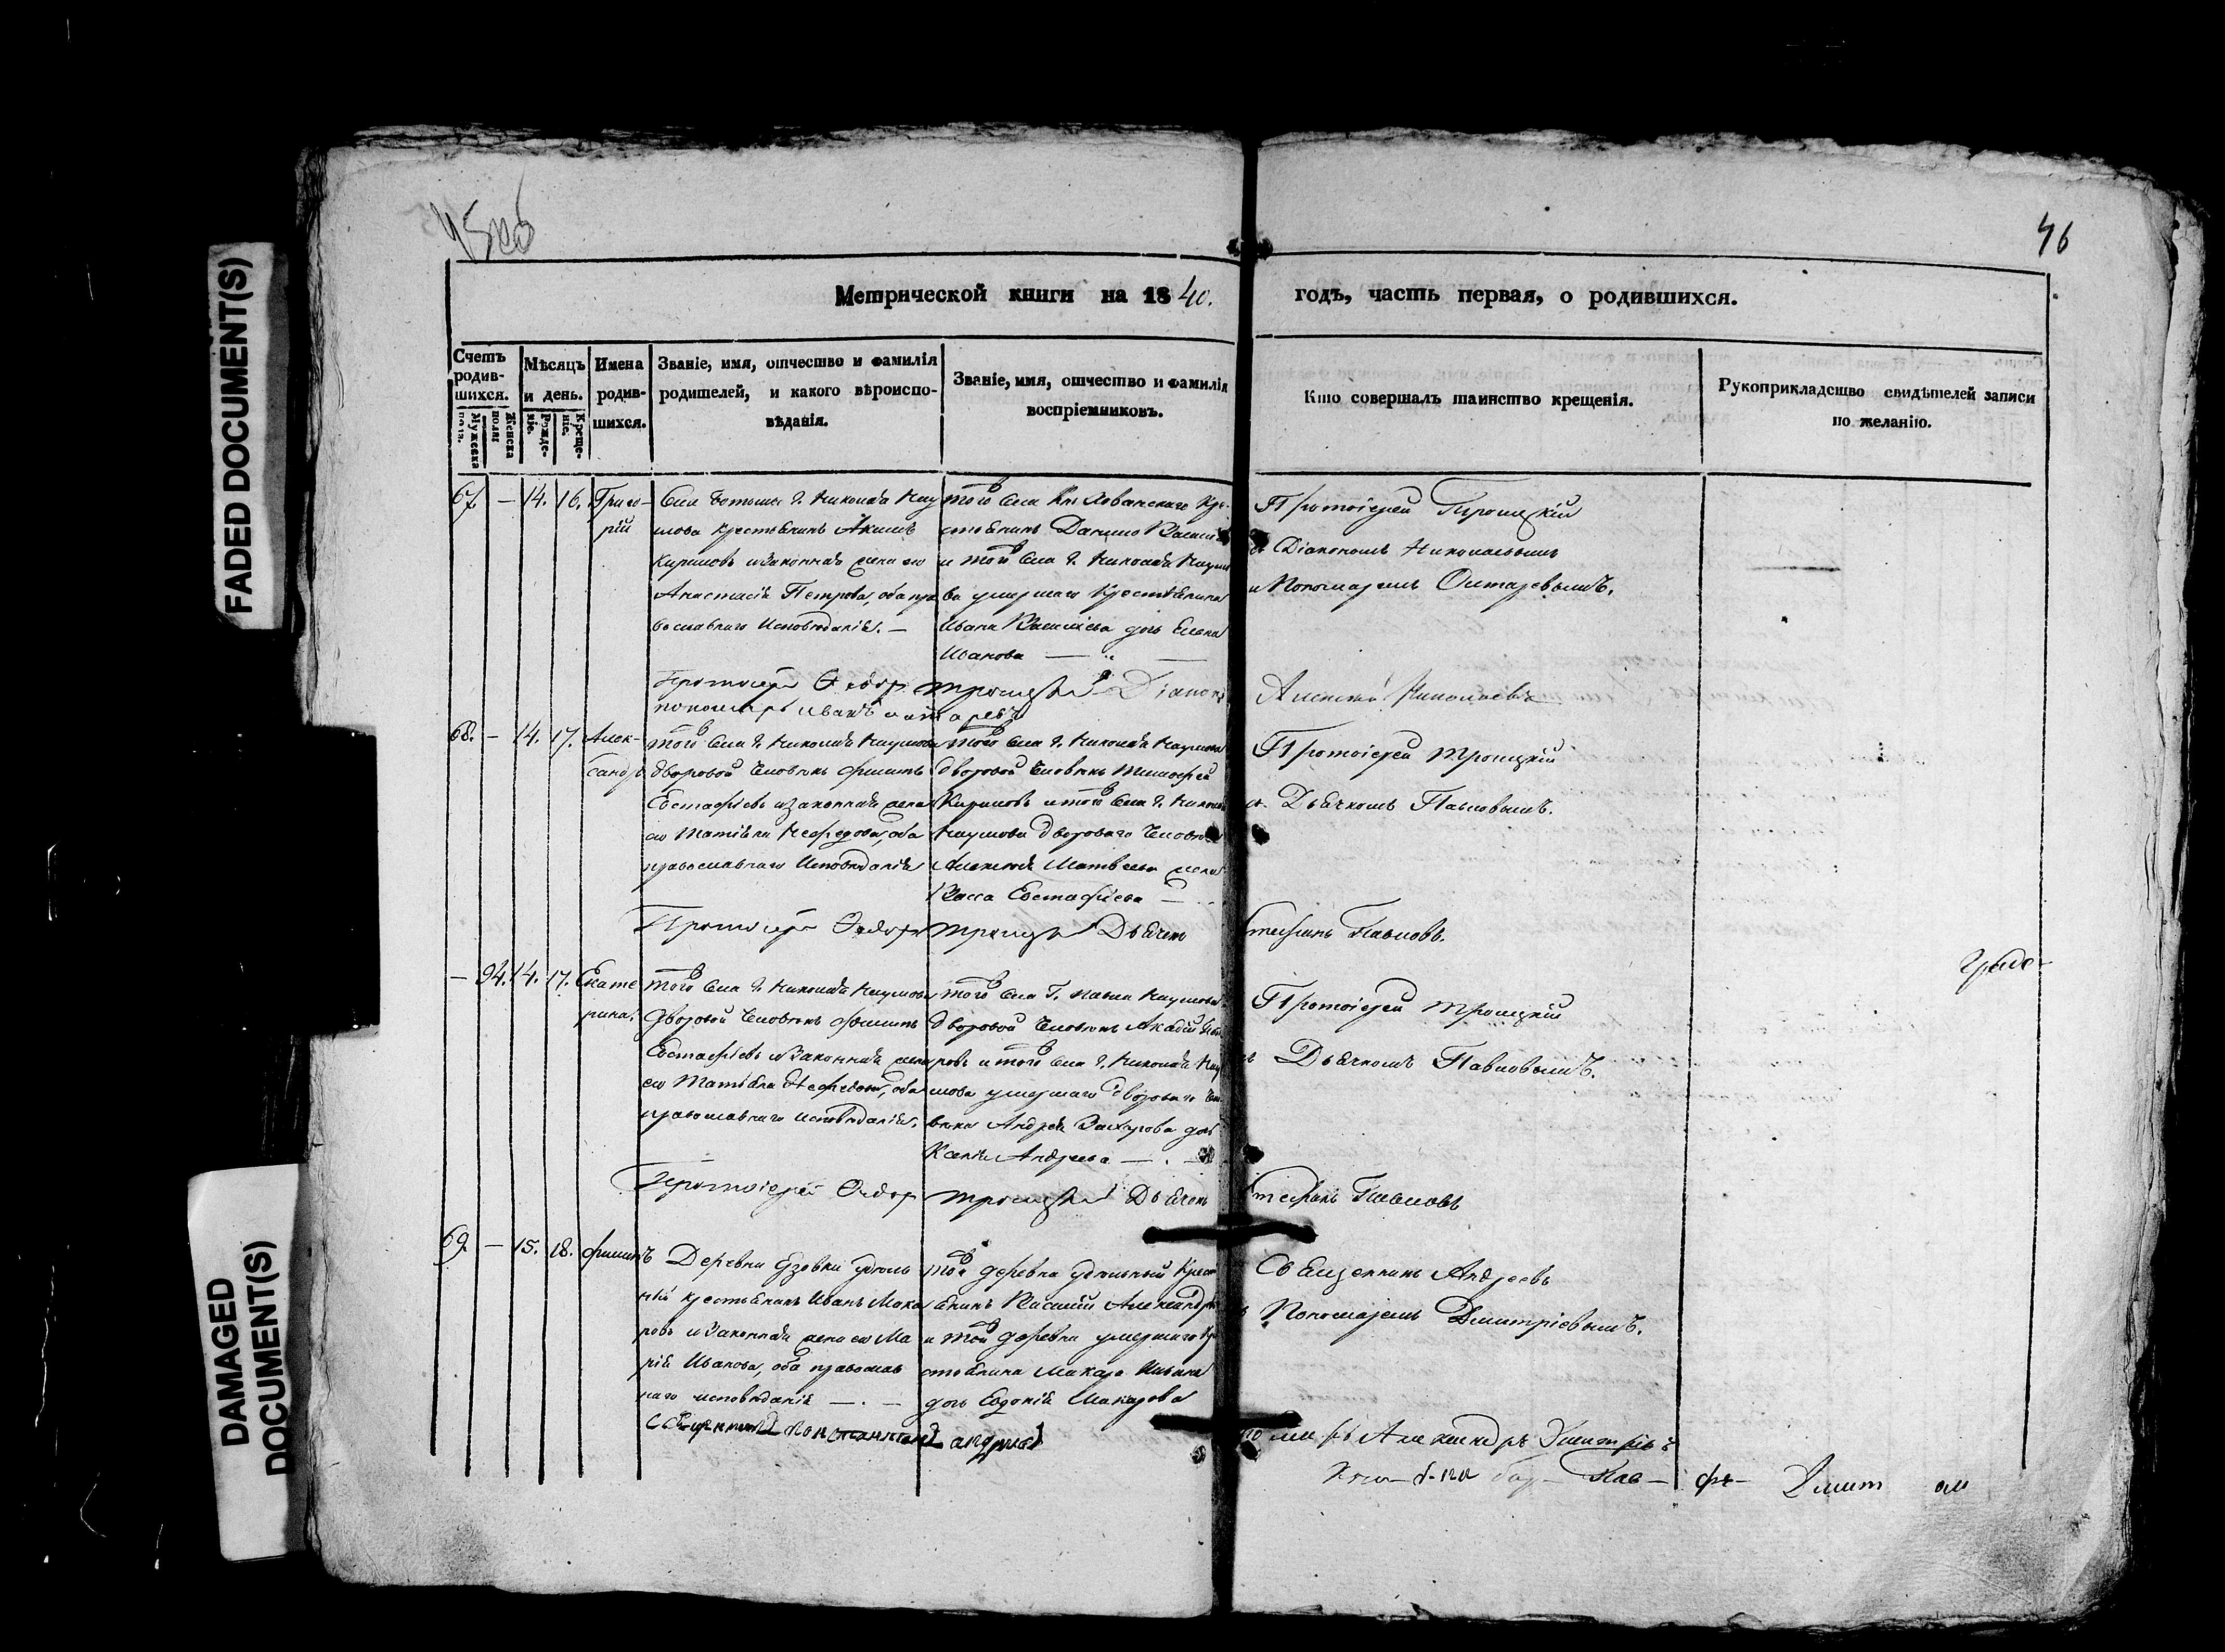 FADED DOCUMENT(S)
DAMAGED
DOCUMENT(S)
46
Метрической книги на 1840. годъ, часть первая, о родившихся.
Счетъ родив-шихся.
Мужеска пола.
Женска пола.
Мѣсяцъ и день.
Рожде-ніе.
Креще-ніе.
Имена родив-шихся.
Званіе, имя, отчество и фамилія
родителей, и какого вѣроиспо-
вѣданія.
Званіе, имя, отчество и фамилія
воспріемниковъ.
Кто совершалъ таинство крещенія.
Рукоприкладство свидѣтелей записи
по желанію.
67. — 14. 16. Григо-
рій
Села Ботьмы г. Николая Нау
мова крестьянинъ Акимъ
Кириловъ и законная жена его
Анастасія Петрова, оба пра
вославнаго исповѣданія. —
того села Кн. Хованскаго кре-
стьянинъ Данило Васильевъ
и того села г. Николая Наумо
ва умершаго крестьянина
Ивана Васильева дочь Елена
Иванова —
Протоіерей Троицкій
съ Діакономъ Николаевымъ
и Пономаремъ Охтаревымъ.
Протоіерей Ѳеодоръ Троицкій Діаконъ Алексѣй Николаевъ
пономарь Иванъ
68. — 14. 17. Алек-
сандръ
того села г. Николая Наумова
дворовой человѣкъ Филипъ
Евстафіевъ и законная жена
его Татіяна Нефедова, оба
православнаго исповѣданія
того села г. Николая Наумова
дворовой человѣкъ Тимофей
Кириловъ и того села г. Николая
Наумова двороваго человѣка
Алексѣя Матвѣева жена
Васса Евстафіева —
Протоіерей Троицкій
съ Дьячкомъ Павловымъ.
Протоіерей Ѳеодоръ Троицкій Дьячекъ Стефанъ Павловъ.
— 94. 14. 17. Екате
рина.
того села г. Николая Наумова
дворовой человѣкъ Филипъ
Евстафіевъ и законная жена
его Татьяна Нефедова, оба
православнаго исповѣданія.
того села г. Павла Наумова
дворовой человѣкъ
ровъ и того села г. Николая Нау
мова умершаго двороваго чело
вѣка Андрея Захарова дочь
Ксенія Андреева —
Протоіерей Троицкій
съ Дьячкомъ Павловымъ.
Протоіерей Ѳеодоръ Троицкій Дьячекъ Стефанъ Павловъ
69. — 15. 18. Филипъ
Деревни Езовки удѣль
ный крестьянинъ Иванъ Мака
ровъ и законная жена его Ма
рія Иванова, оба православ
наго исповѣданія —
той деревни удѣльный крест
янинъ Василій Александровъ
и той деревни умершаго кре
стьянина Макара Иванова
дочь Евдокія Макарова
Священникъ Андреевъ
съ Пономаремъ Дмитріевымъ.
Священникъ Константинъ Андреевъ
Пономарь Александръ Дмитріевъ